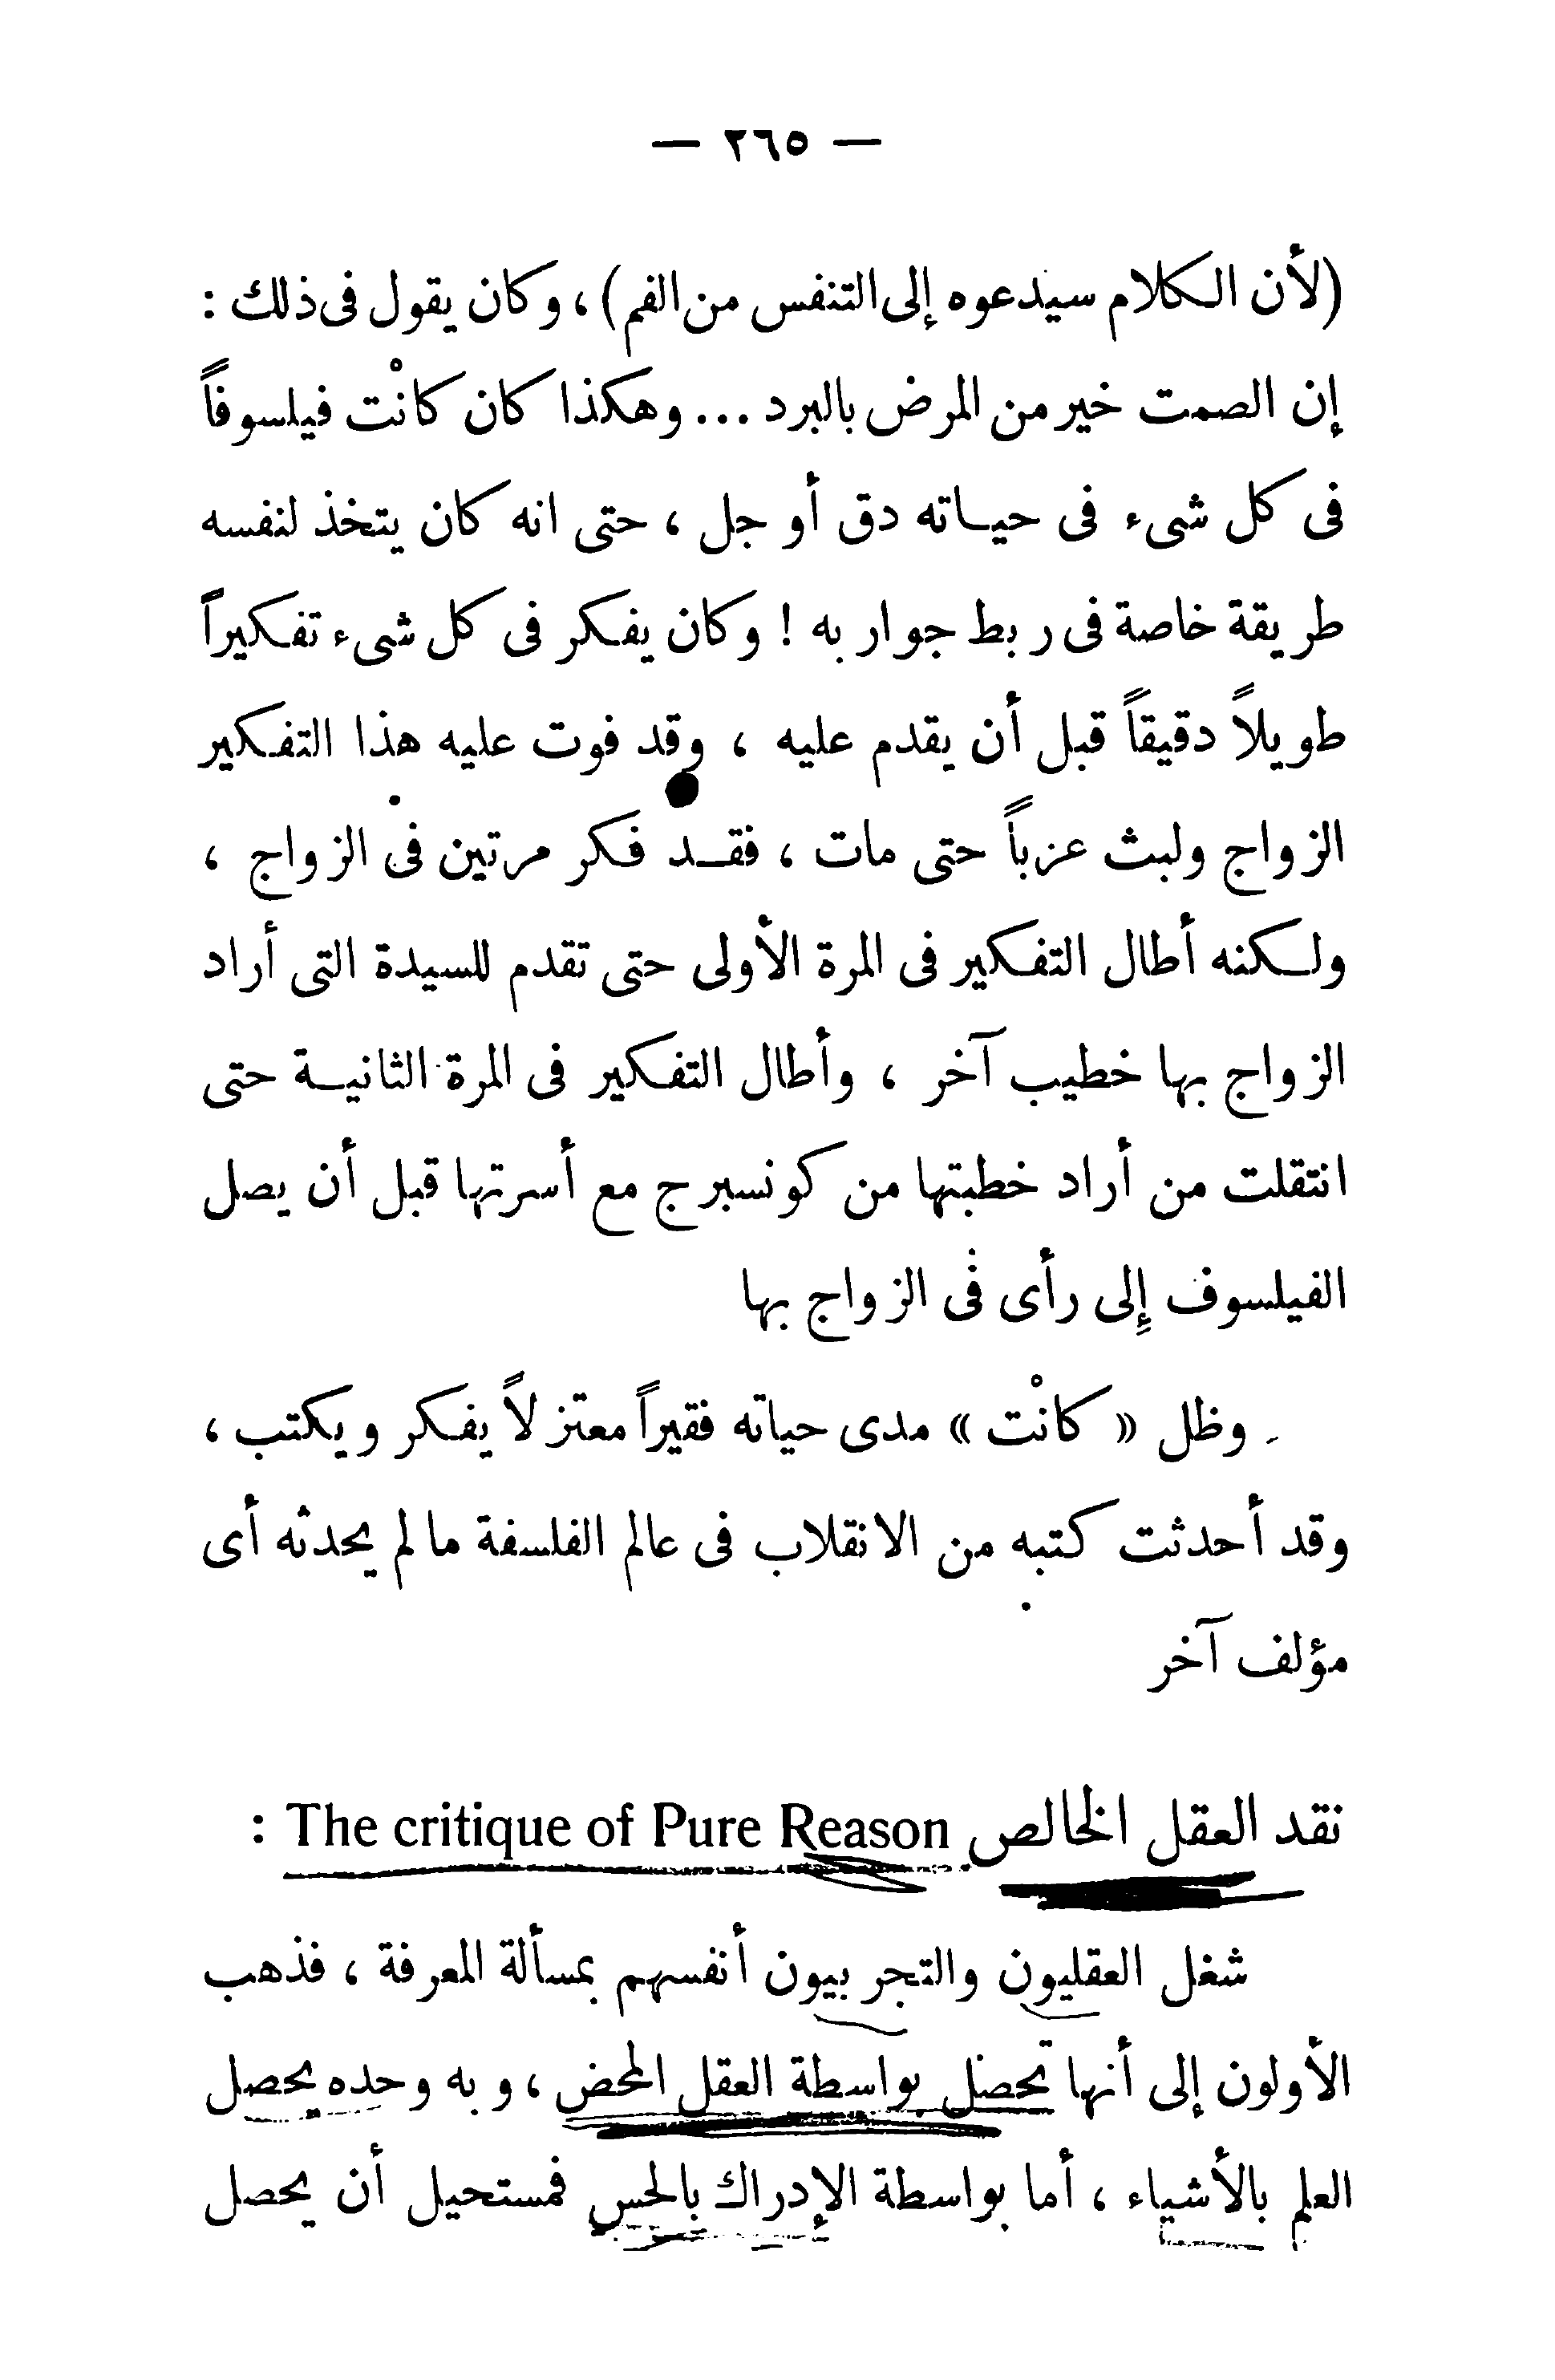 — ٢٦٥ —
(لأن الكلام سيدعوه إلى التنفس من الفم) ، وكان يقول فى ذلك :
إن الصمت خير من المرض بالبرد ... وهكذا كان كانْت فيلسوفاً
فى كل شىء فى حياته دق أو جل ، حتى انه كان يتخذ لنفسه
طريقة خاصة فى ربط جواربه ! وكان يفكر فى كل شىء تفكيراً
طويلاً دقيقاً قبل أن يقدم عليه ، وقد فوت عليه هذا التفكير
الزواج ولبث عزباً حتى مات ، فقد فكر مرتين فى الزواج ،
ولكنه أطال التفكير فى المرة الأولى حتى تقدم للسيدة التى أراد
الزواج بها خطيب آخر ، وأطال التفكير فى المرة الثانية حتى
انتقلت من أراد خطبتها من كونسبرج مع أسرتها قبل أن يصل
الفيلسوف إلى رأى فى الزواج بها
وظل « كانْت » مدى حياته فقيراً معتزلاً يفكر ويكتب ،
وقد أحدثت كتبه من الانقلاب فى عالم الفلسفة ما لم يحدثه أى
مؤلف آخر
نقد العقل الخالص The critique of Pure Reason :
شغل العقليون والتجريبيون أنفسهم بمسألة المعرفة ، فذهب
الأولون إلى أنها تحصل بواسطة العقل المحض ، وبه وحده يحصل
العلم بالأشياء ، أما بواسطة الإدراك بالحس فمستحيل أن يحصل